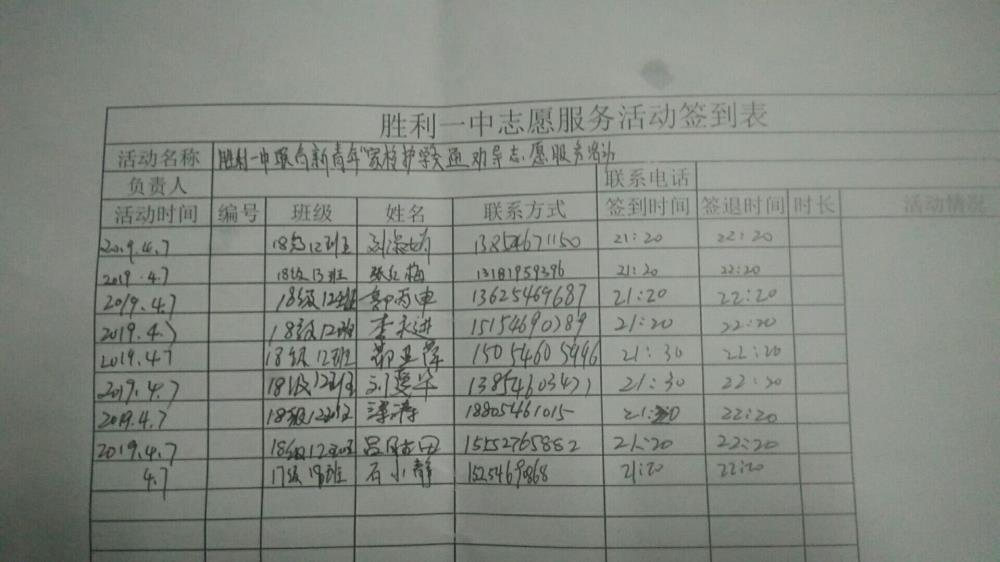 胜利一中志愿服务活动签到表
活动名称 胜利一中联合新青年"家校护学"交通劝导志愿服务活动
负责人 联系电话
活动时间 编号 班级 姓名 联系方式 签到时间 签退时间 时长 活动情况
2019.4.7 18级12班 刘 13854671150 21:20 22:20
2019.4.7 18级13班 张红梅 13181959396 21:20 22:20
2019.4.7 18级12班 郭丙申 13625469687 21:20 22:20
2019.4.7 18级12班 李永进 15154690789 21:20 22:20
2019.4.7 18级12班 15054605996 21:30 22:20
2019.4.7 18级12班 刘爱华 13854603471 21:30 22:20
2019.4.7 18级12班 18805461015 22:20
2019.4.7 18级12班 15552765882 21:20 22:20
4.7 17级 班 石小静 21:20 22:20